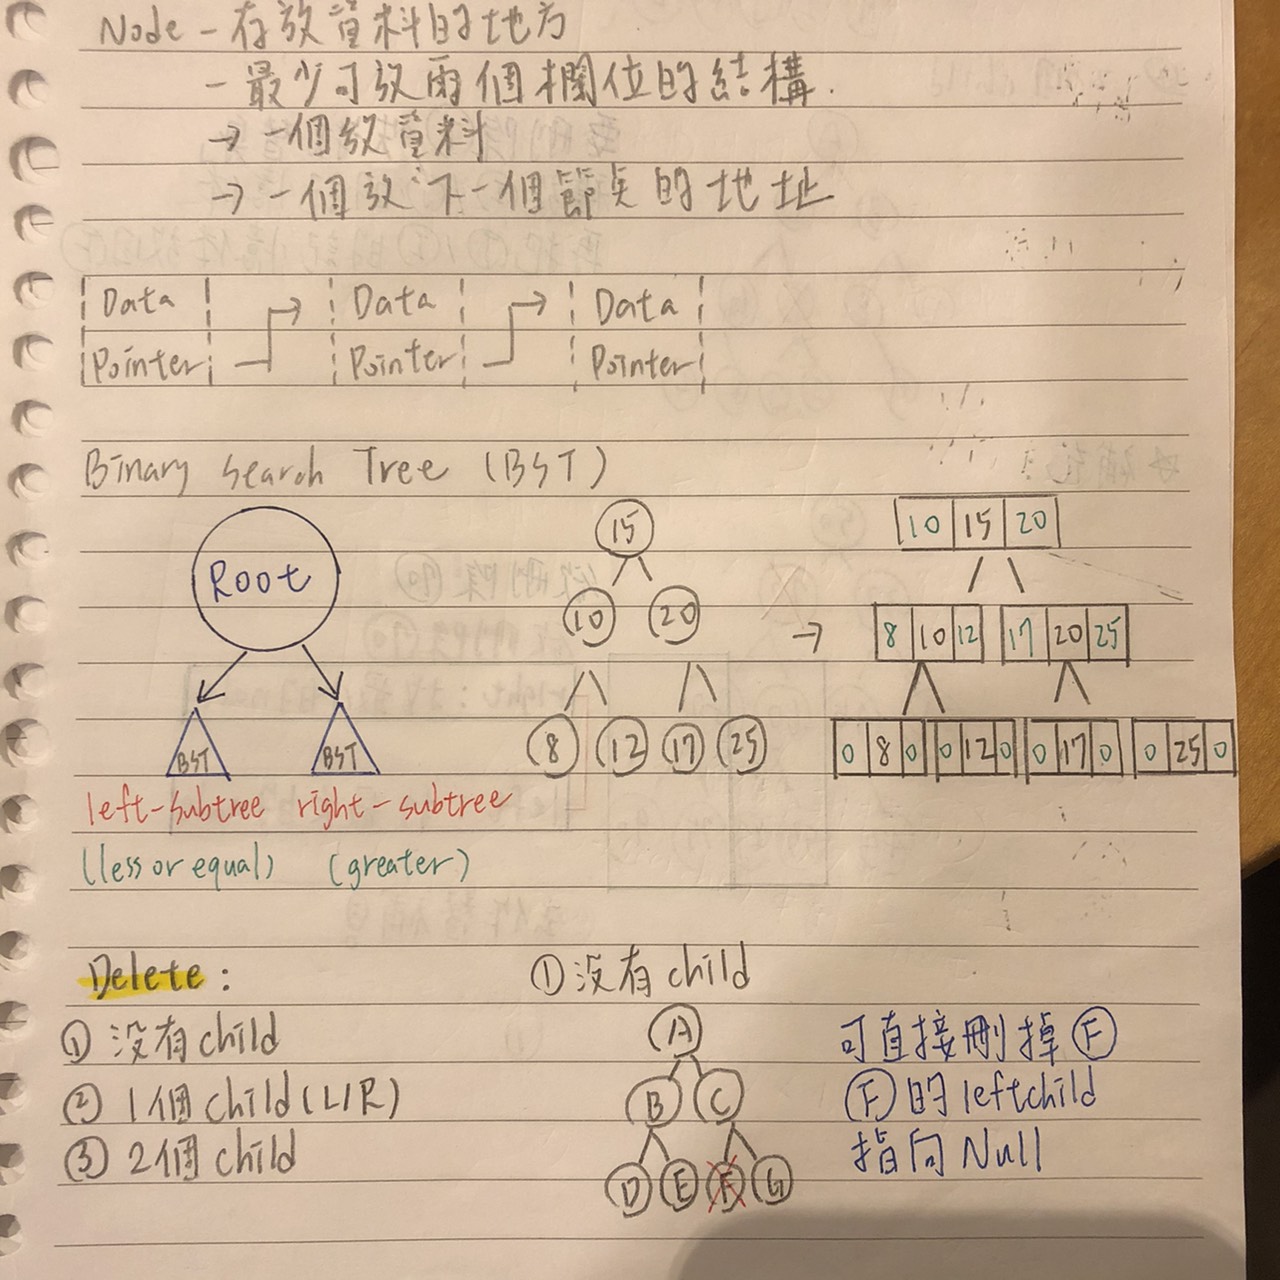 Node - 存放資料的地方
- 最少可放兩個欄位的結構.
→ 一個放資料
→ 一個放下一個節点的地址
Data Data Data
Pointer Pointer Pointer
Binary Search Tree (BST)
Root
BST BST
left-subtree right-subtree
(less or equal) (greater)
15
10 20
8 12 17 25
→
10 15 20
8 10 12 17 20 25
0 8 0 0 12 0 0 17 0 0 25 0
Delete:
① 沒有child
② 1個child(L/R)
③ 2個child
① 沒有child
A
B C
D E F G
可直接刪掉Ⓕ
Ⓕ的leftchild
指向Null